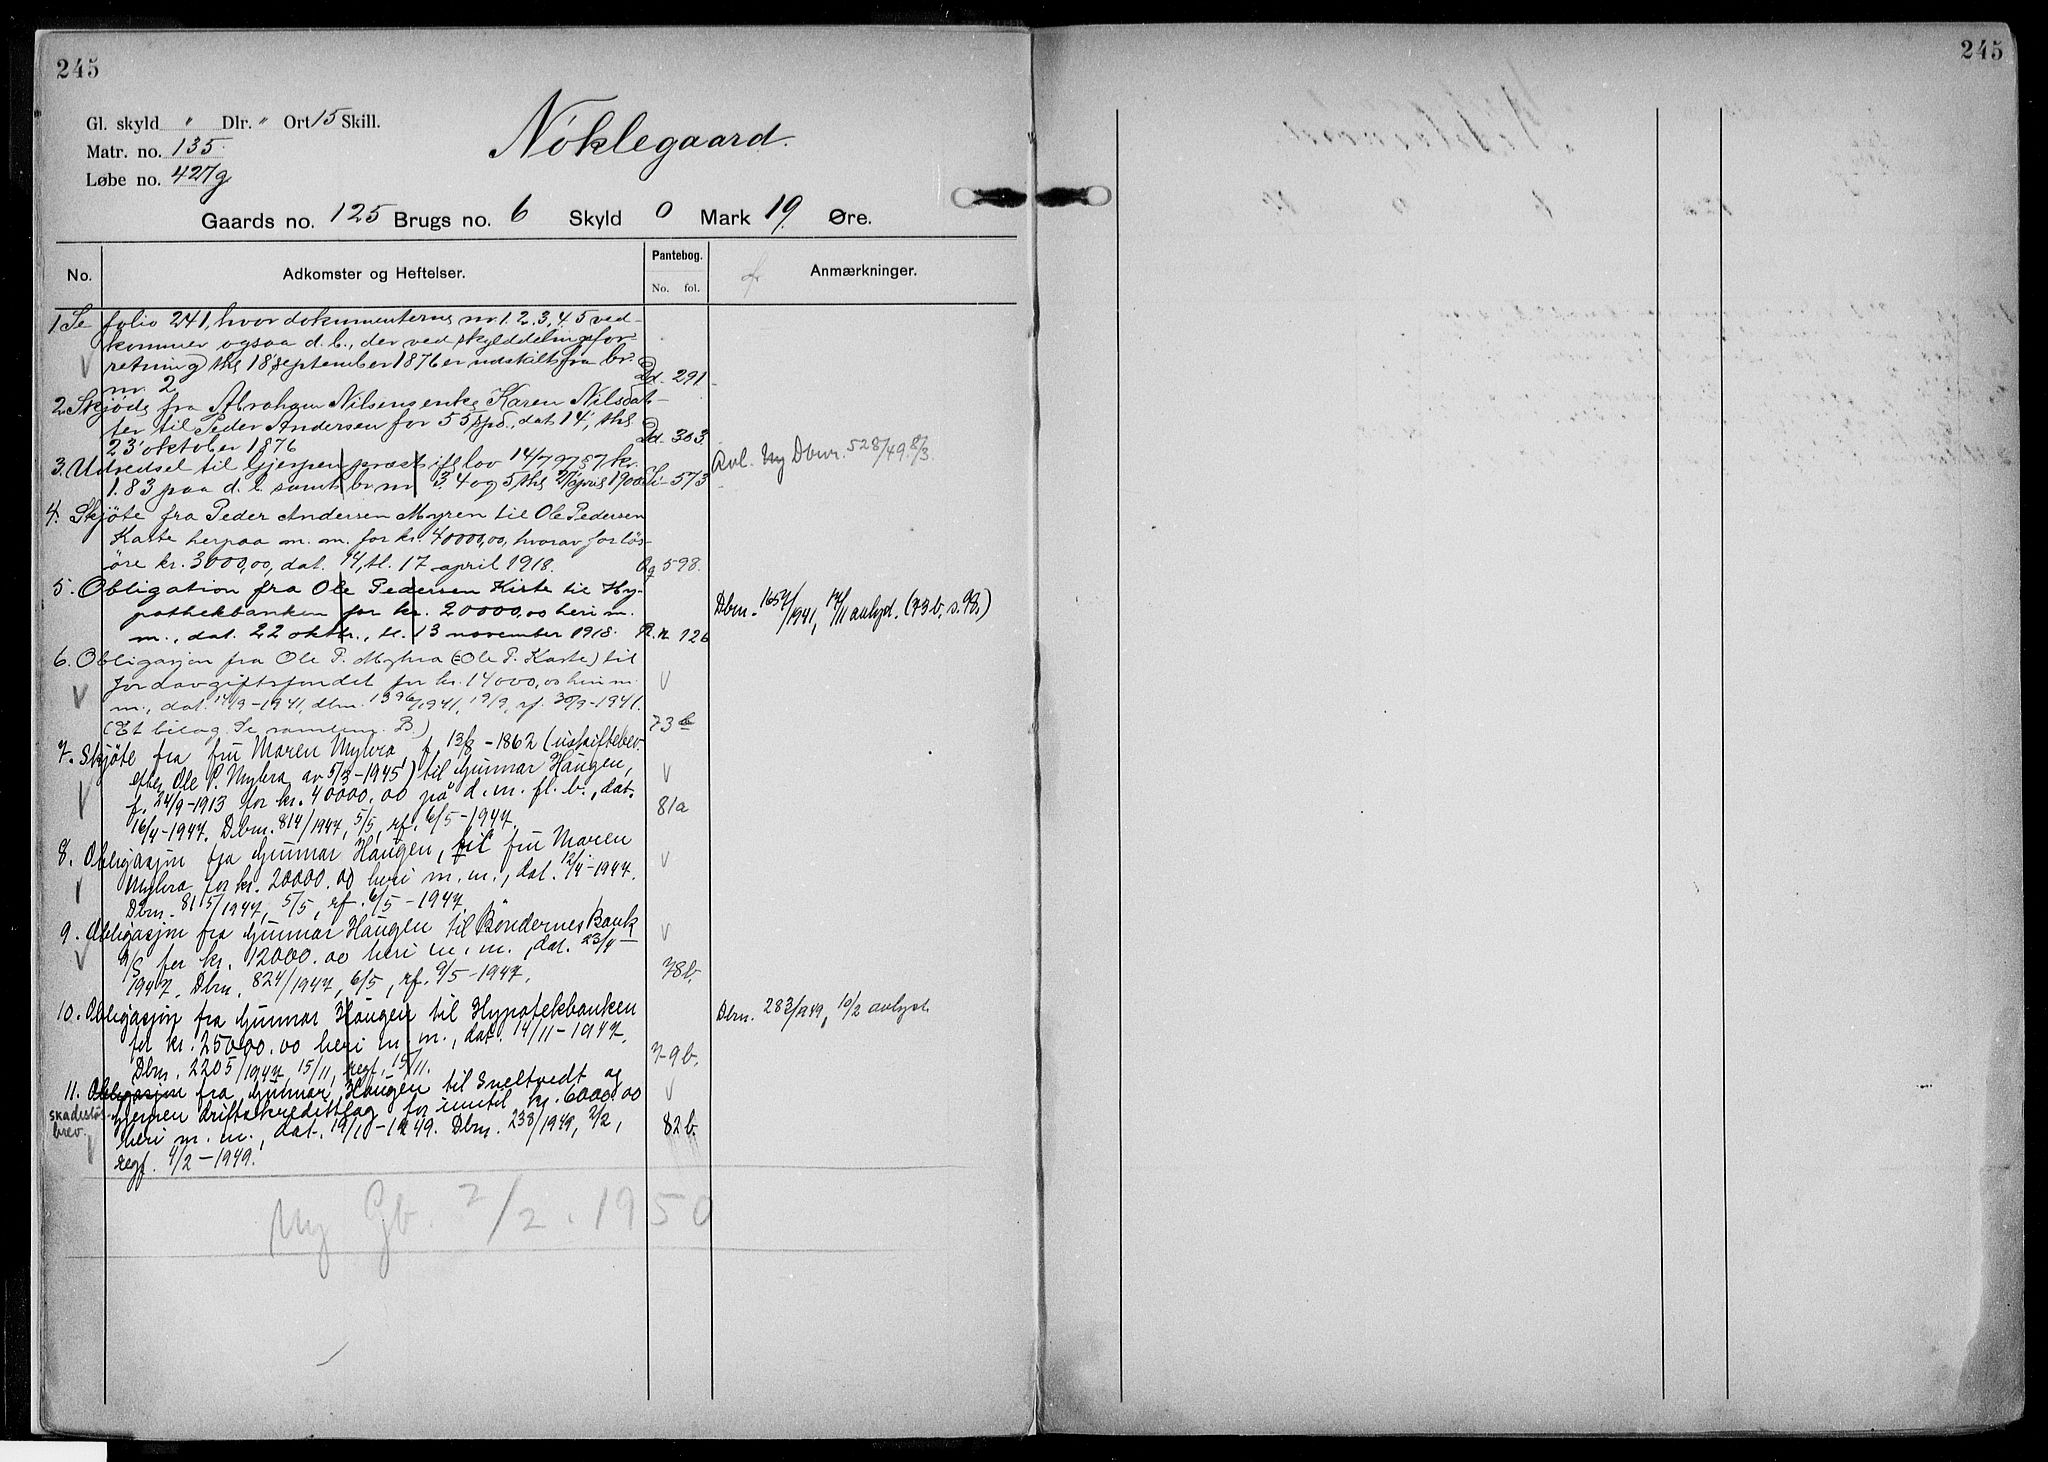 245
245
Gl. skyld " Dlr. " Ort 15 Skill.
Matr. no. 135
Løbe no. 427g
Nöklegaard.
Gaards no. 125 Brugs no. 6 Skyld 0 Mark 19 Øre.
No. Adkomster og Heftelser. Pantebog. No. fol. Anmærkninger.
1 Se folio 241, hvor dokumenterne nr 1. 2. 3, 4. 5 ved-
kommer ogsaa d. b., der ved skylddelingsfor-
retning thl 18 september 1876 er udskilt fra br.
nr. 2 Dd. 291
2 Skjöde fra Abraham Nilsens enke Karen Nilsdat-
ter til Peder Andersen for 55 spd., dat 14, thl
23 oktober 1876 Dd. 303
3. Udredsel til Gjerpen præst ifl lov 14/7 97 § 7 kr.
1.83 paa d. b. samt br nr 3. 4 og 5 thl 2/april 1900 573
Avl. Ny Dbnr. 528/49 8/3.
4. Skjöte fra Peder Andersen Myren til Ole Pedersen
Kaste herpaa m. m. for kr. 40000,00, hvorav for lös-
öre kr. 3000,00, dat. 14, tl. 17 april 1918. Og 598.
5. Obligation fra Ole Pedersen Kiste til Hy-
pothekbanken for kr. 20000,00 heri m.
m., dat. 22 oktbr., tl. 13 november 1918. R. r. 126
Dbnr. 1657/1941, 17/11 avlyst. (73 b, s. 98)
6. Obligasjon fra Ole P. Myhra (= Ole P. Kaste) til
Jordavgiftsfondet for kr. 14000,00 heri m.
m., dat. 14/9-1941, dbnr. 1396/1941, 19/9, rf. 30/9-1941.
(Et bilag. Se samlem. B) 73 b
7. Skjöte fra fru Maren Myhra, f. 13/8-1862 (uskiftebev.
efter Ole P. Myhra av 5/3-1945) til Gunnar Haugen,
f. 24/9-1913 for kr. 40000.00 på d. m. fl. b., dat. 81a
16/4-1947. Dbnr. 814/1947, 5/5, rf. 6/5-1947.
8. Obligasjon fra Gunnar Haugen, til fru Maren
Myhra for kr. 20000.00 heri m. m., dat. 12/4-1947.
Dbnr. 815/1947, 5/5, rf. 6/5-1947.
9. Obligasjon fra Gunnar Haugen til Böndernes Bank
A/S for kr. 12000.00 heri m. m., dat. 23/4-
1947. Dbnr. 824/1947, 6/5, rf. 9/5-1947. 78b.
10. Obligasjon fra Gunnar Haugen til Hypotekbanken
for kr. 25000.00 heri m. m., dat. 14/11-1947.
Dbnr. 2205/1947, 15/11, regf. 15/11. 79b.
Dbnr. 283/1949, 10/2 avlyst.
11. Obligasjon fra Gunnar Haugen til Sneltvedt og
skadesløs-
brev.
Gjerpen driftskredittlag for inntil kr. 6000.00
heri m. m., dat. 19/1-1949. Dbnr. 238/1949, 2/2, 82b.
regf. 4/2-1949.
Ny Gb. 2/2. 1950